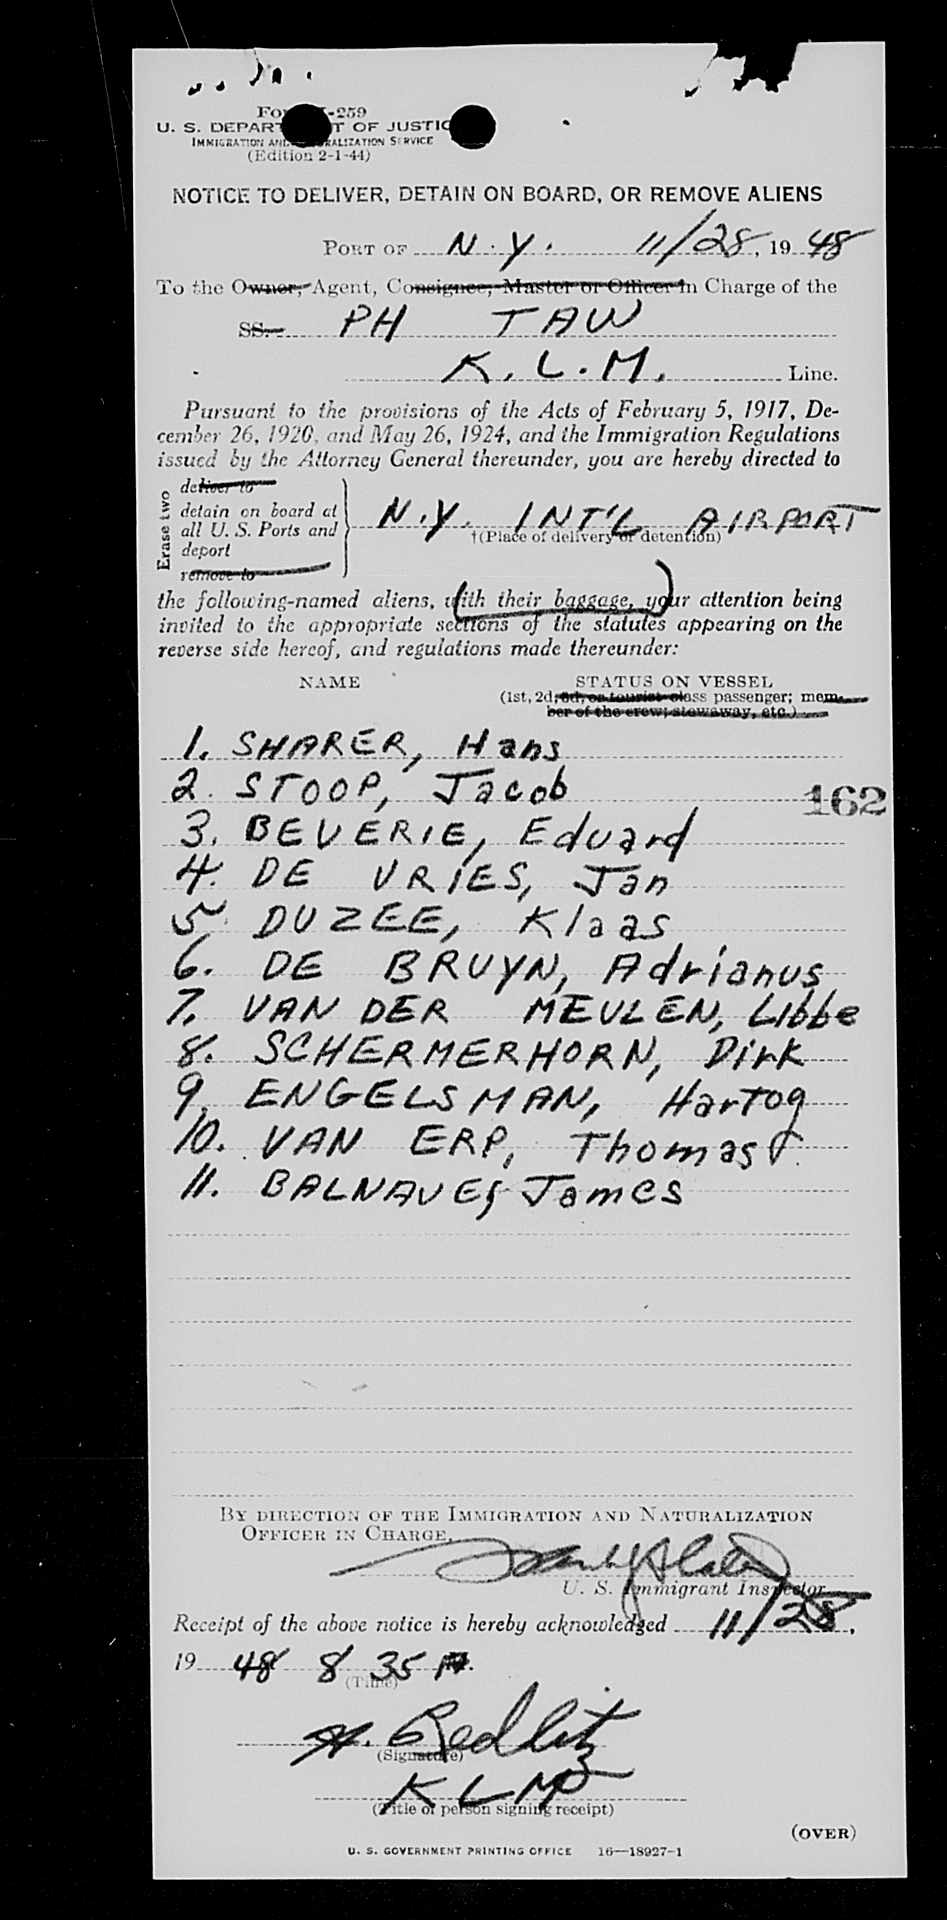 Form I-259
U. S. DEPARTMENT OF JUSTICE
IMMIGRATION AND NATURALIZATION SERVICE
(Edition 2-1-44)
NOTICE TO DELIVER, DETAIN ON BOARD, OR REMOVE ALIENS
PORT OF N.Y. 11/28, 19 48
To the Owner, Agent, Consignee, Master or Officer in Charge of the
SS. PH TAW
K.L.M. Line.
Pursuant to the provisions of the Acts of February 5, 1917, De-
cember 26, 1920, and May 26, 1924, and the Immigration Regulations
issued by the Attorney General thereunder, you are hereby directed to
Erase two
deliver to
detain on board at
all U. S. Ports and
deport
remove to
N.Y. INT'L AIRPORT
†(Place of delivery or detention)
the following-named aliens, (with their baggage,) your attention being
invited to the appropriate sections of the statutes appearing on the
reverse side hereof, and regulations made thereunder:
NAME STATUS ON VESSEL
(1st, 2d, 3d, or tourist class passenger; mem-
ber of the crew; stowaway, etc.)
1. SHARER, Hans
2. STOOP, Jacob
162
3. BEVERIE, Eduard
4. DE VRIES, Jan
5. DUZEE, Klaas
6. DE BRUYN, Adrianus
7. VAN DER MEULEN, Libbe
8. SCHERMERHORN, Dirk
9. ENGELSMAN, Hartog
10. VAN ERP, Thomas J.
11. BALNAVES, James
BY DIRECTION OF THE IMMIGRATION AND NATURALIZATION
OFFICER IN CHARGE.
U. S. Immigrant Inspector
Receipt of the above notice is hereby acknowledged 11/28,
19 48 8 35 P.
(Time)
H. Redlitz
(Signature)
KLM
(Title of person signing receipt)
(OVER)
U. S. GOVERNMENT PRINTING OFFICE 16—18927-1